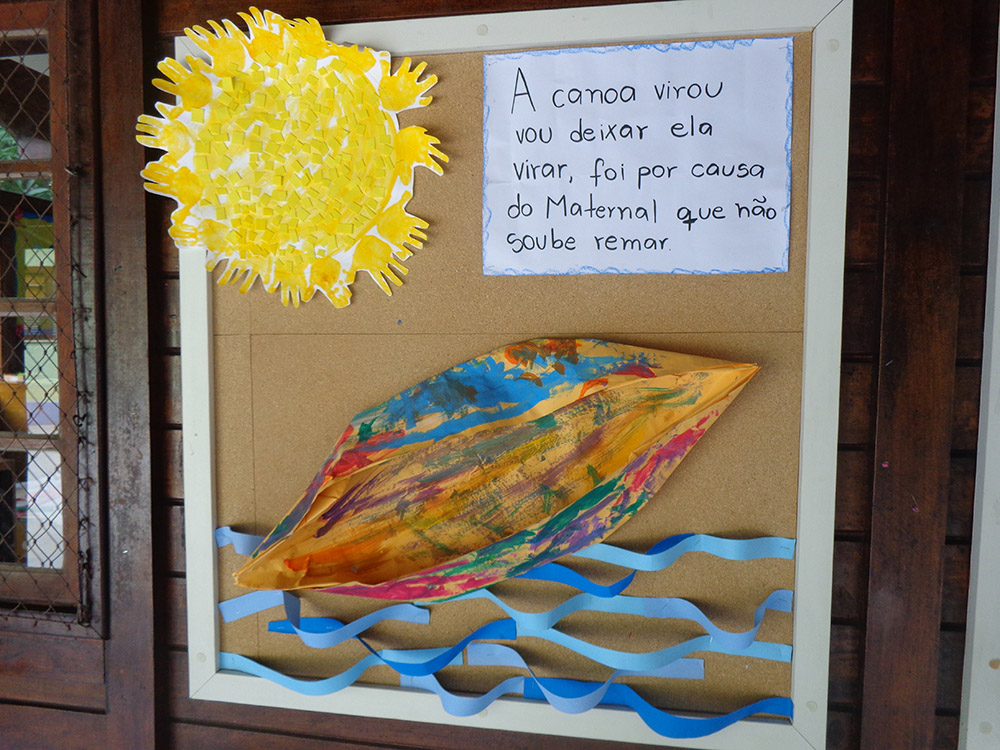 A canoa virou
vou deixar ela
virar, foi por causa
do Maternal que não
soube remar.